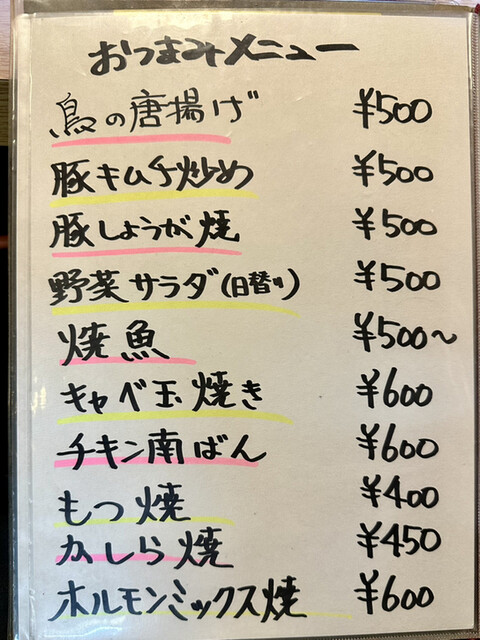 おつまみメニュー
鳥の唐揚げ ¥500
豚キムチ炒め ¥500
豚しょうが焼 ¥500
野菜サラダ(日替り) ¥500
焼魚 ¥500〜
キャベ玉焼き ¥600
チキン南ばん ¥600
もつ焼 ¥400
かしら焼 ¥450
ホルモンミックス焼 ¥600